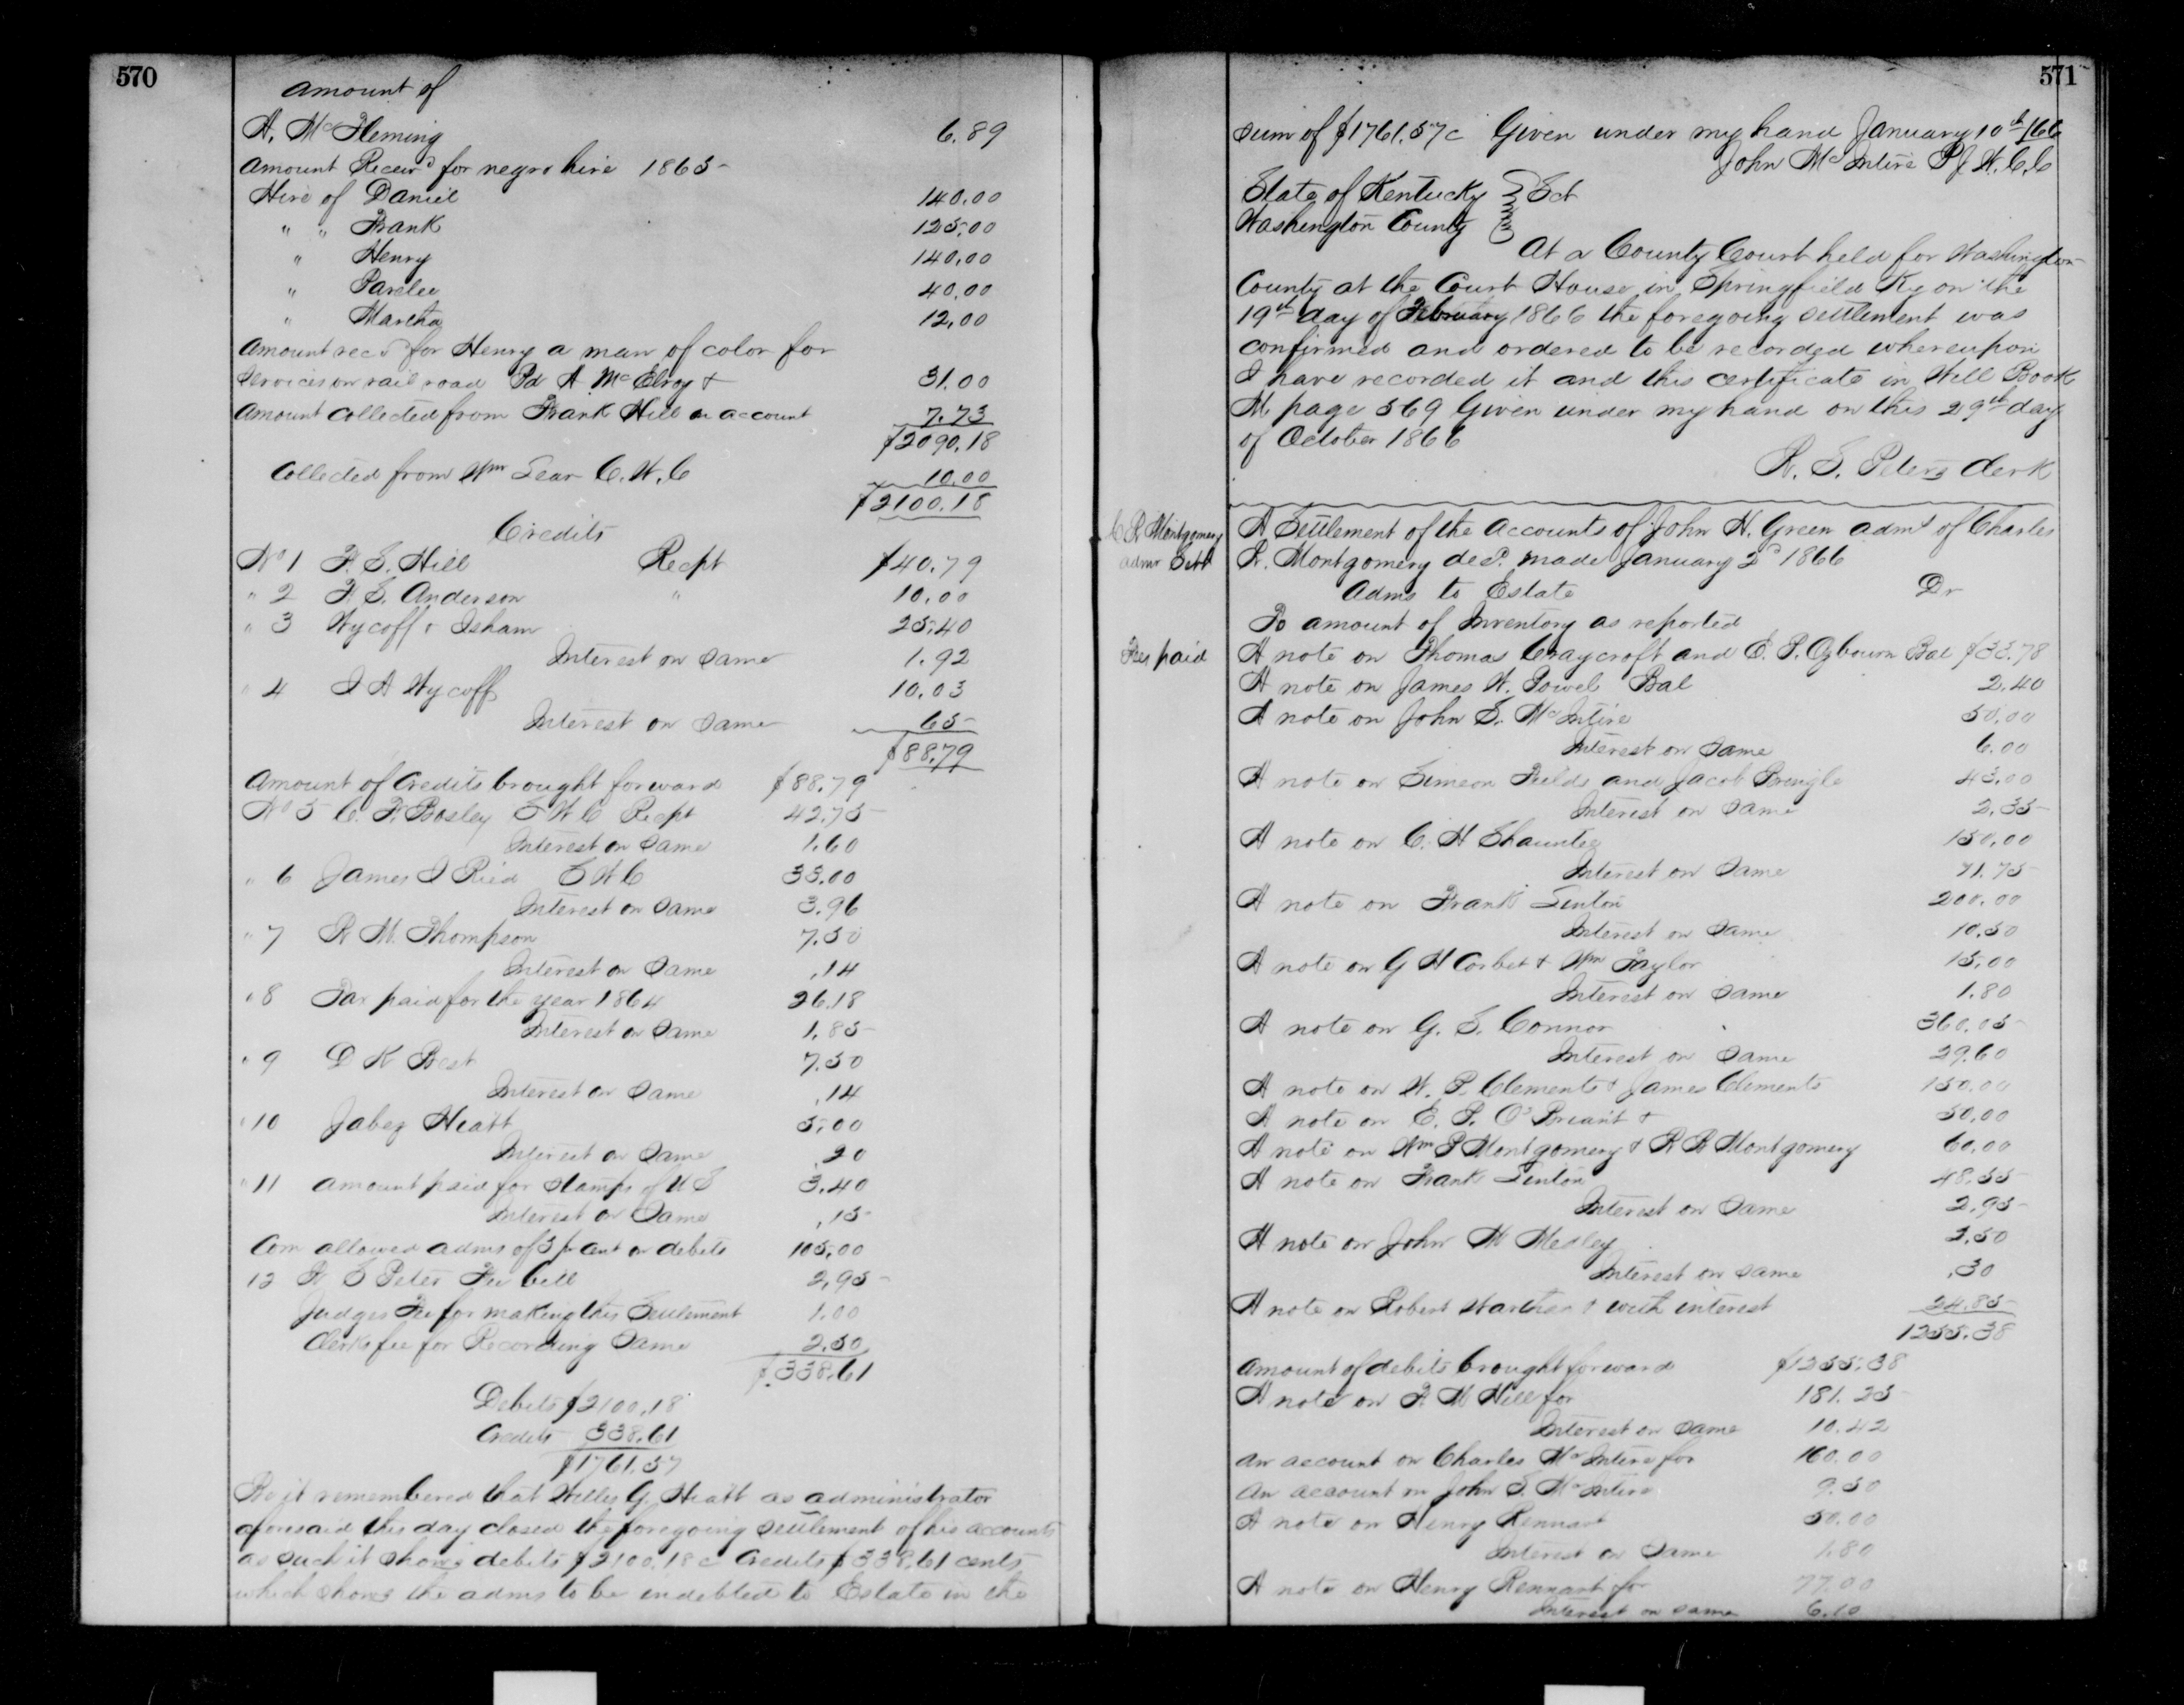 570
amount of
A. Mc Fleming 6.89
Amount Receivd for negro hire 1865
Hire of Daniel 140.00
" " Frank 125.00
" Henry 140.00
" Parelee 40.00
" Martha 12.00
Amount recd for Henry a man of color for
services on rail road Pd A McElroy + 31.00
Amount collected from Frank Hill on account 7.73
$2090.18
Collected from Wm Lear C.W.C 10.00
$2100.18
Credits
No 1 F. S. Hill Recpt $40.79
" 2 F. S. Anderson " 10.00
" 3 Wycoff & Isham 25.40
Interest on same 1.92
" 4 I A Wycoff 10.03
Interest on same 65
$88.79
Amount of Credits brought forward $88.79
No 5 C. F. Bosley S W C Recpt 42.75
Interest on same 1.60
" 6 James I Ried S W C 33.00
Interest on same 3.96
" 7 R M. Thompson 7.50
Interest on same .14
" 8 Tax paid for the year 1864 26.18
Interest on same 1.85
" 9 D K Best 7.50
Interest on same .14
" 10 Jabez Hiatt 5.00
Interest on same .20
" 11 amount paid for stamps of U S 3.40
Interest on same .15
Com allowed adms of 5 pr cent on debits 105.00
12 W S Peter Fee bill 2.95
Judges Fee for making this Settlement 1.00
Clerks fee for Recording Same 2.50
$338.61
Debits $2100.18
Credits 338.61
$1761.57
Be it remembered that Willis G. Hiatt as administrator
aforesaid this day closed the foregoing settlement of his accounts
as such it shows debits $2100.18c Credits $338.61 cents
which shows the adms to be indebted to Estate in the
571
sum of $1761.57c Given under my hand January 10th /66
John McIntire P J W.C.C
State of Kentucky Sct
Washington County
At a County Court held for Washington
County at the Court House in Springfield Ky on the
19th day of February 1866 the foregoing settlement was
confirmed and ordered to be recorded whereupon
I have recorded it and this certificate in Will Book
M page 569 Given under my hand on this 29th day
of October 1866
W. S. Peters Clerk
C R Montgomery
admr Settl
A Settlement of the Accounts of John H. Green admr of Charles
R. Montgomery decd. made January 2d 1866
Adms to Estate Dr
To amount of Inventory as reported
Fees paid
A note on Thomas Craycroft and E. P. Ogbourn Bal $33.78
A note on James W. Powel Bal 2.40
A note on John S. McIntire 50.00
Interest on same 6.00
A note on Simeon Fields and Jacob Pringle 43.00
Interest on same 2.35
A note on C. H Shauntee 150.00
Interest on same 71.75
A note on Frank Linton 200.00
Interest on same 10.50
A note on G H Corbet & Wm Taylor 15.00
Interest on same 1.80
A note on G. S. Connor 360.05
Interest on same 29.60
A note on W. P. Clements & James Clements 150.00
A note on E. P. O'Briant + 50.00
A note on Wm P Montgomery & R R Montgomery 60.00
A note on Frank Linton 48.55
Interest on same 2.95
A note on John M Medley 2.50
Interest on same .30
A note on Robert + with interest 24.85
1255.38
Amount of debits brought forward $1255.38
A note on F. M Hill for 181.25
Interest on same 10.42
an account on Charles McIntire for 160.00
an account on John S. McIntire 9.50
A note on Henry Rennart 50.00
Interest on same 1.80
A note on Henry Rennart for 77.00
Interest on same 6.10